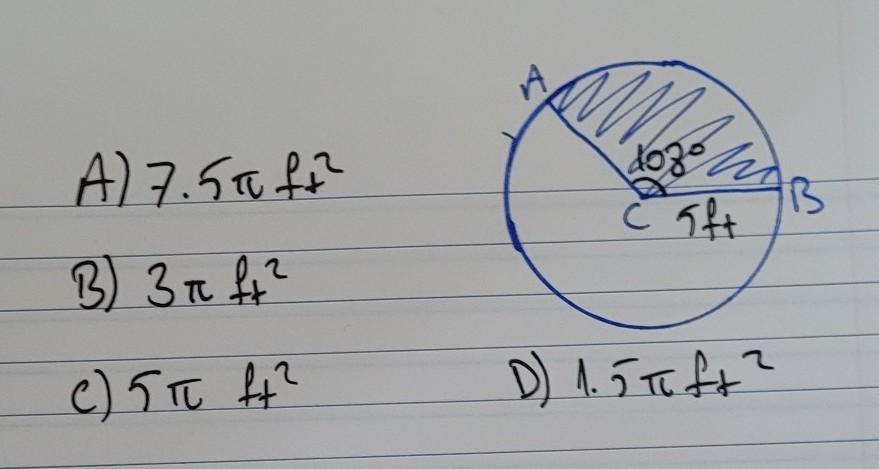 A
108°
C
B
5ft
A) 7.5π ft²
B) 3π ft²
C) 5π ft²
D) 1.5π ft²